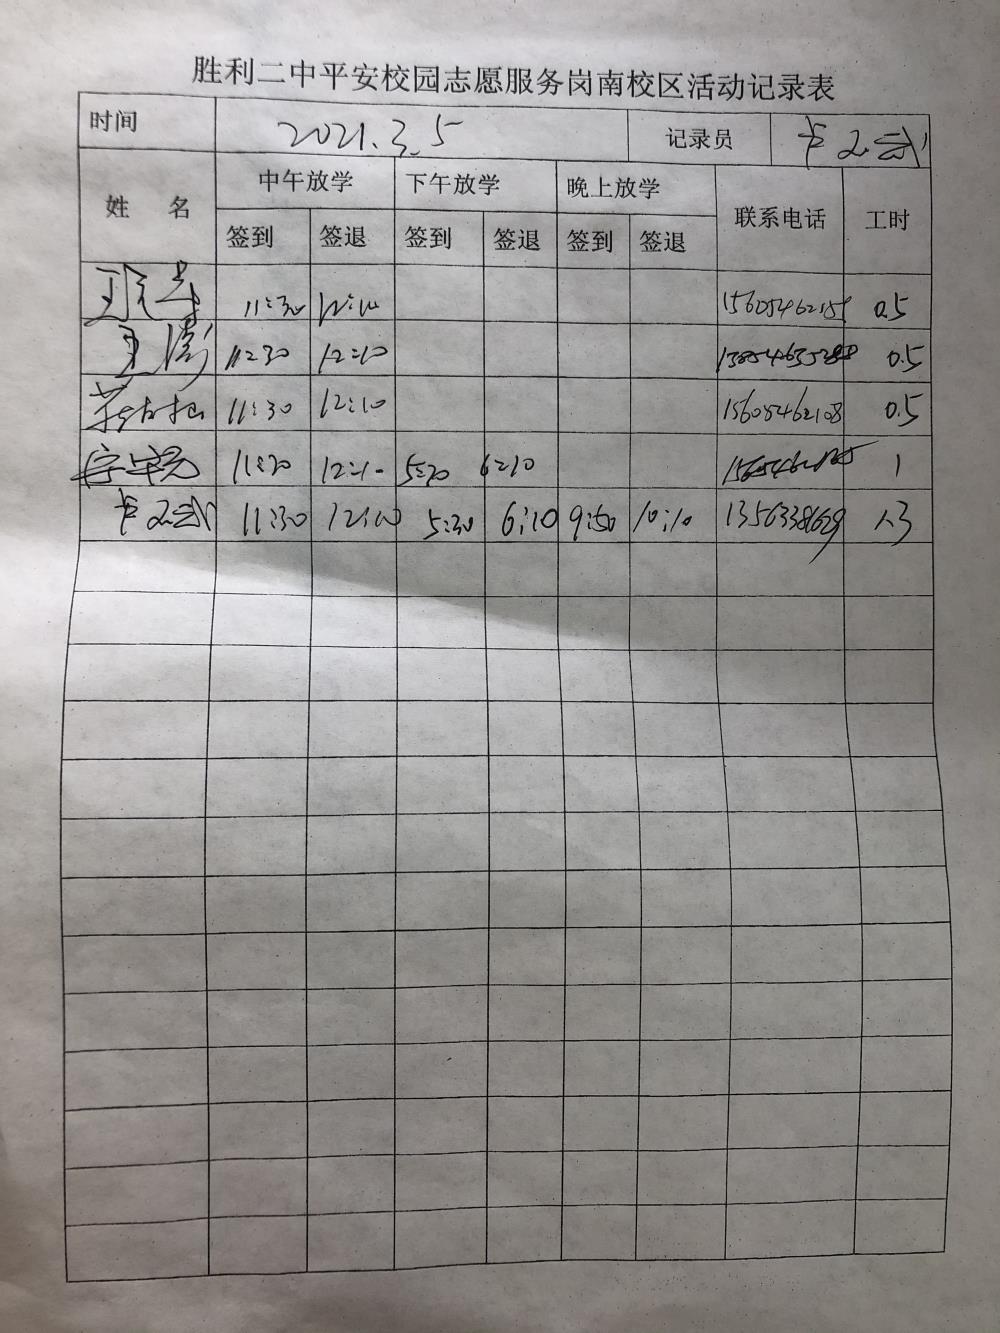 胜利二中平安校园志愿服务岗南校区活动记录表
时间 2021.3.5 记录员
姓 名 中午放学 下午放学 晚上放学 联系电话 工时
签到 签退 签到 签退 签到 签退
11:30 12:10 0.5
王澎 11:30 12:10 0.5
11:30 12:10 15605462108 0.5
11:30 12:10 5:30 6:10 1
11:30 12:10 5:30 6:10 9:50 10:10 13563381629